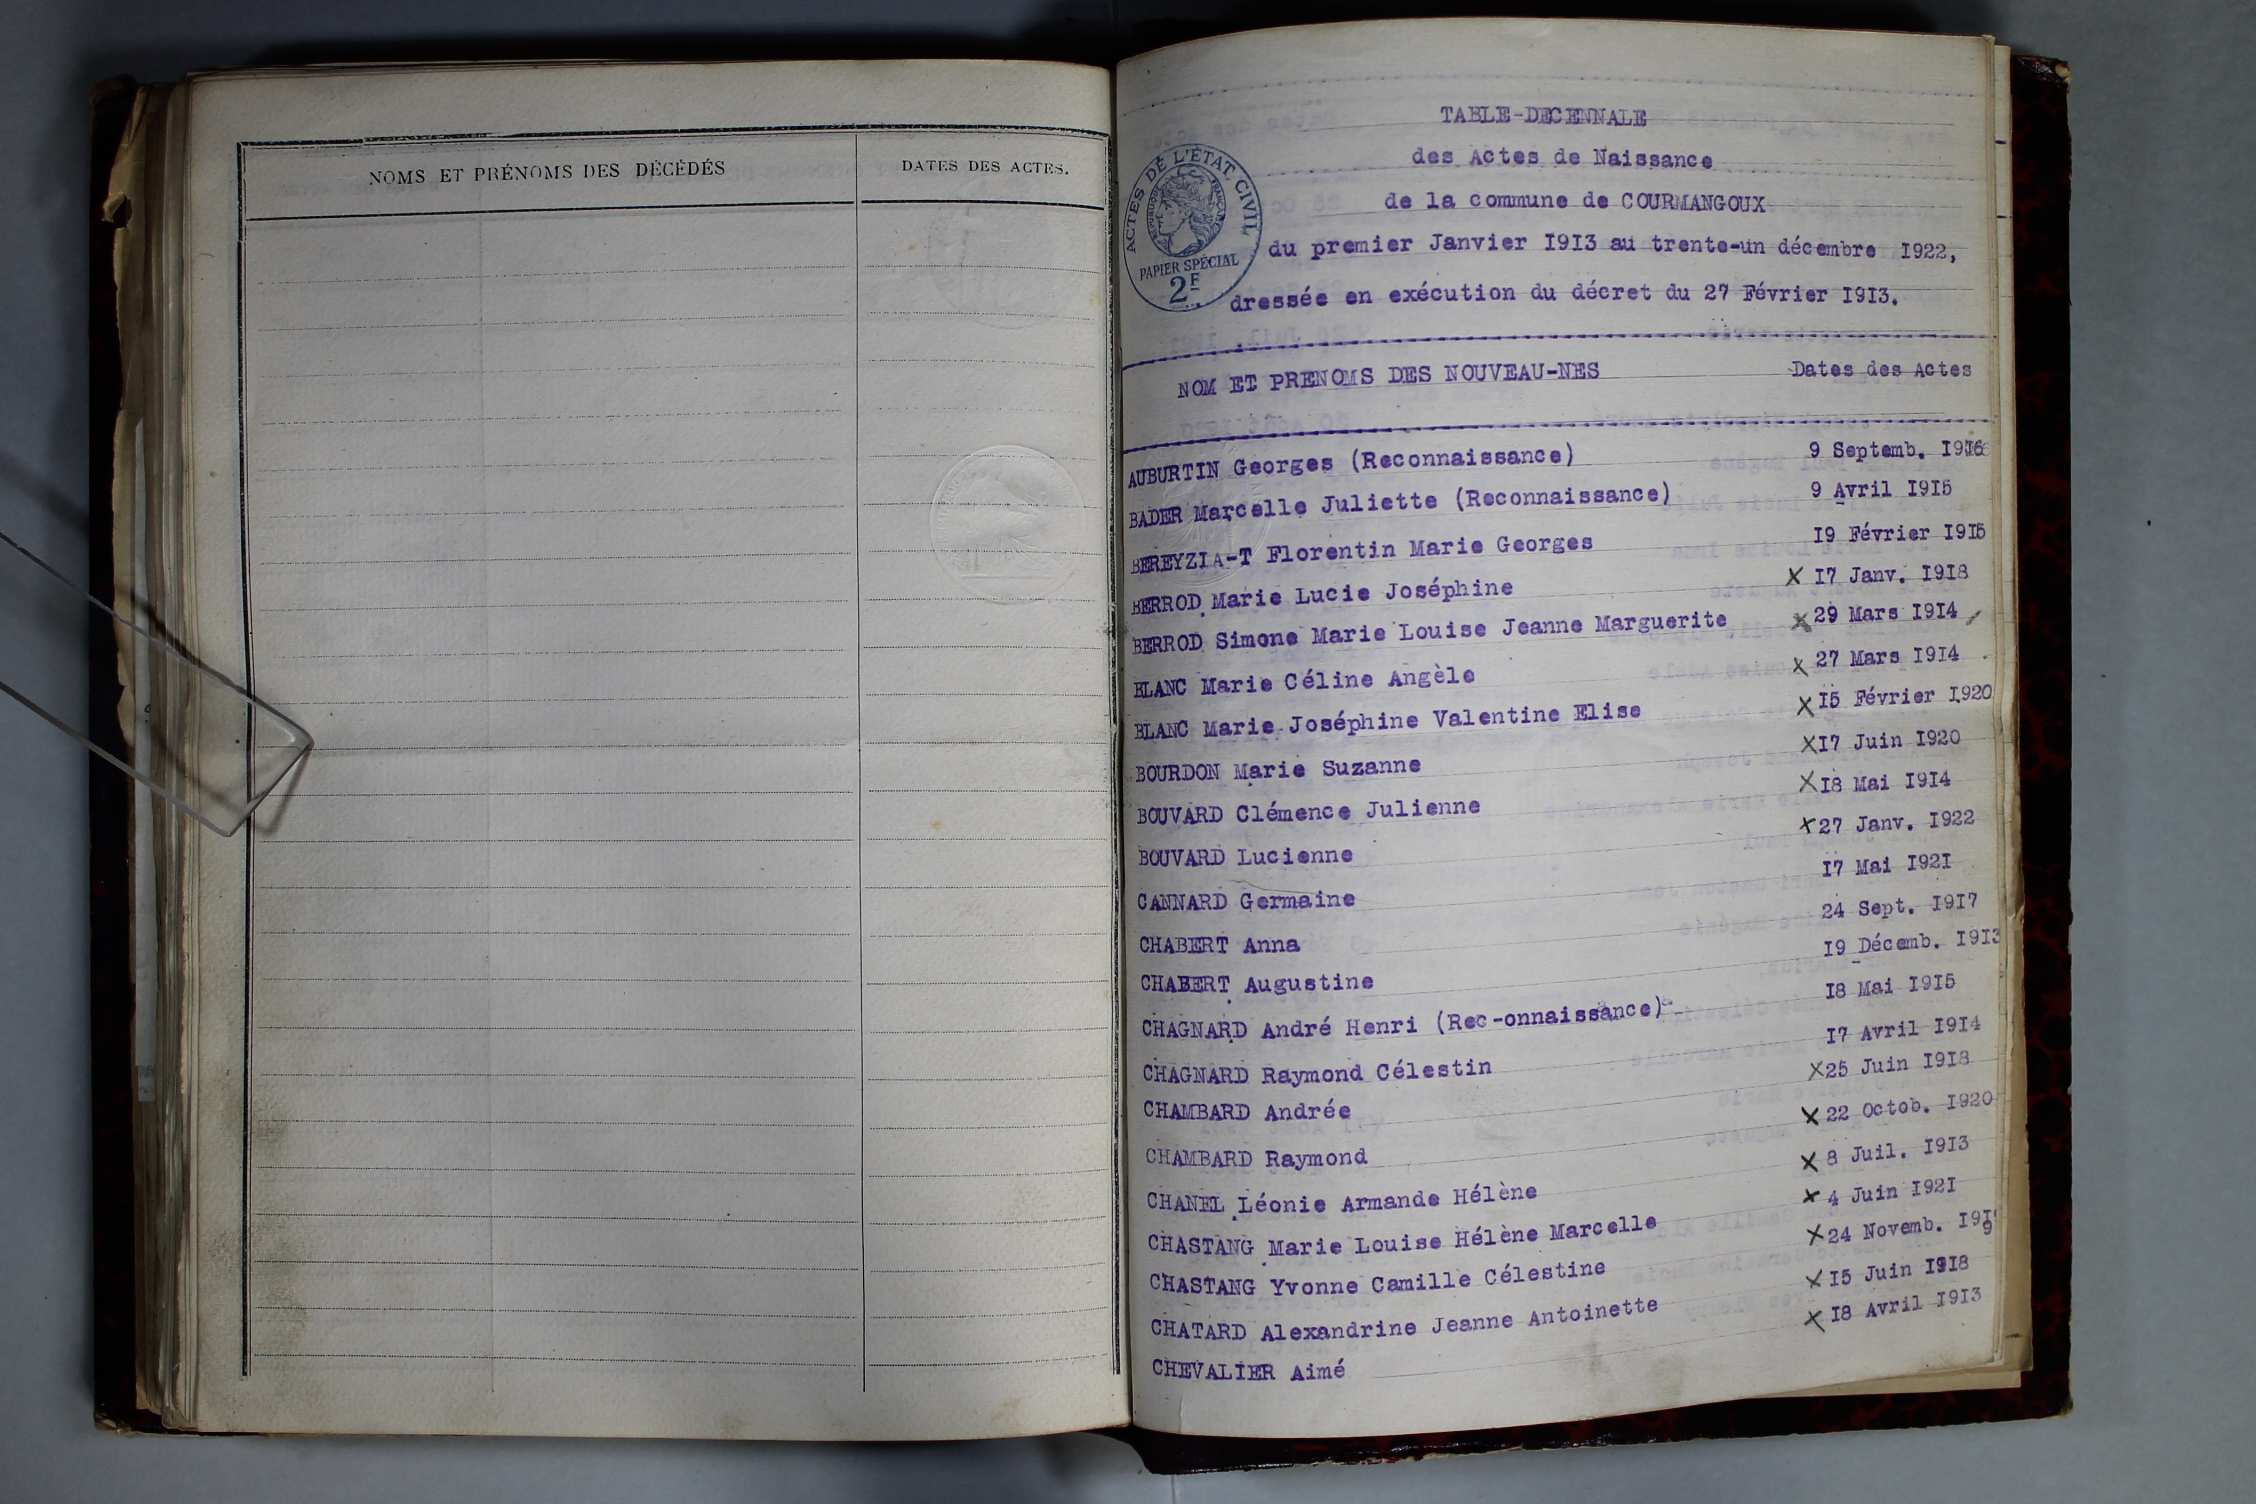 NOMS ET PRÉNOMS DES DÉCÉDÉS DATES DES ACTES.
ACTES DE L'ÉTAT CIVIL
REPUBLIQUE FRANÇAISE
PAPIER SPÉCIAL
2F
TABLE-DECENNALE
des Actes de Naissance
de la commune de COURMANGOUX
du premier Janvier I9I3 au trente-un décembre I922,
dressée en exécution du décret du 27 Février I9I3.
NOM ET PRENOMS DES NOUVEAU-NES Dates des Actes
AUBURTIN Georges (Reconnaissance) 9 Septemb. I9I6
BADER Marcelle Juliette (Reconnaissance) 9 Avril I9I5
BEREYZIA-T Florentin Marie Georges I9 Février I9I5
BERROD Marie Lucie Joséphine X I7 Janv. I9I8
BERROD Simone Marie Louise Jeanne Marguerite X 29 Mars I9I4
BLANC Marie Céline Angèle X 27 Mars I9I4
BLANC Marie Joséphine Valentine Elise X I5 Février I920
BOURDON Marie Suzanne X I7 Juin I920
BOUVARD Clémence Julienne X I8 Mai I9I4
BOUVARD Lucienne X 27 Janv. I922
CANNARD Germaine I7 Mai I92I
CHABERT Anna 24 Sept. I9I7
CHABERT Augustine I9 Décemb. I9I3
CHAGNARD André Henri (Rec-onnaissance) I8 Mai I9I5
CHAGNARD Raymond Célestin I7 Avril I9I4
CHAMBARD Andrée X 25 Juin I9I8
CHAMBARD Raymond X 22 Octob. I920
CHANEL Léonie Armande Hélène X 8 Juil. I9I3
CHASTANG Marie Louise Hélène Marcelle X 4 Juin I92I
CHASTANG Yvonne Camille Célestine X 24 Novemb. I9I9
CHATARD Alexandrine Jeanne Antoinette X I5 Juin I9I8
CHEVALIER Aimé X I8 Avril I9I3